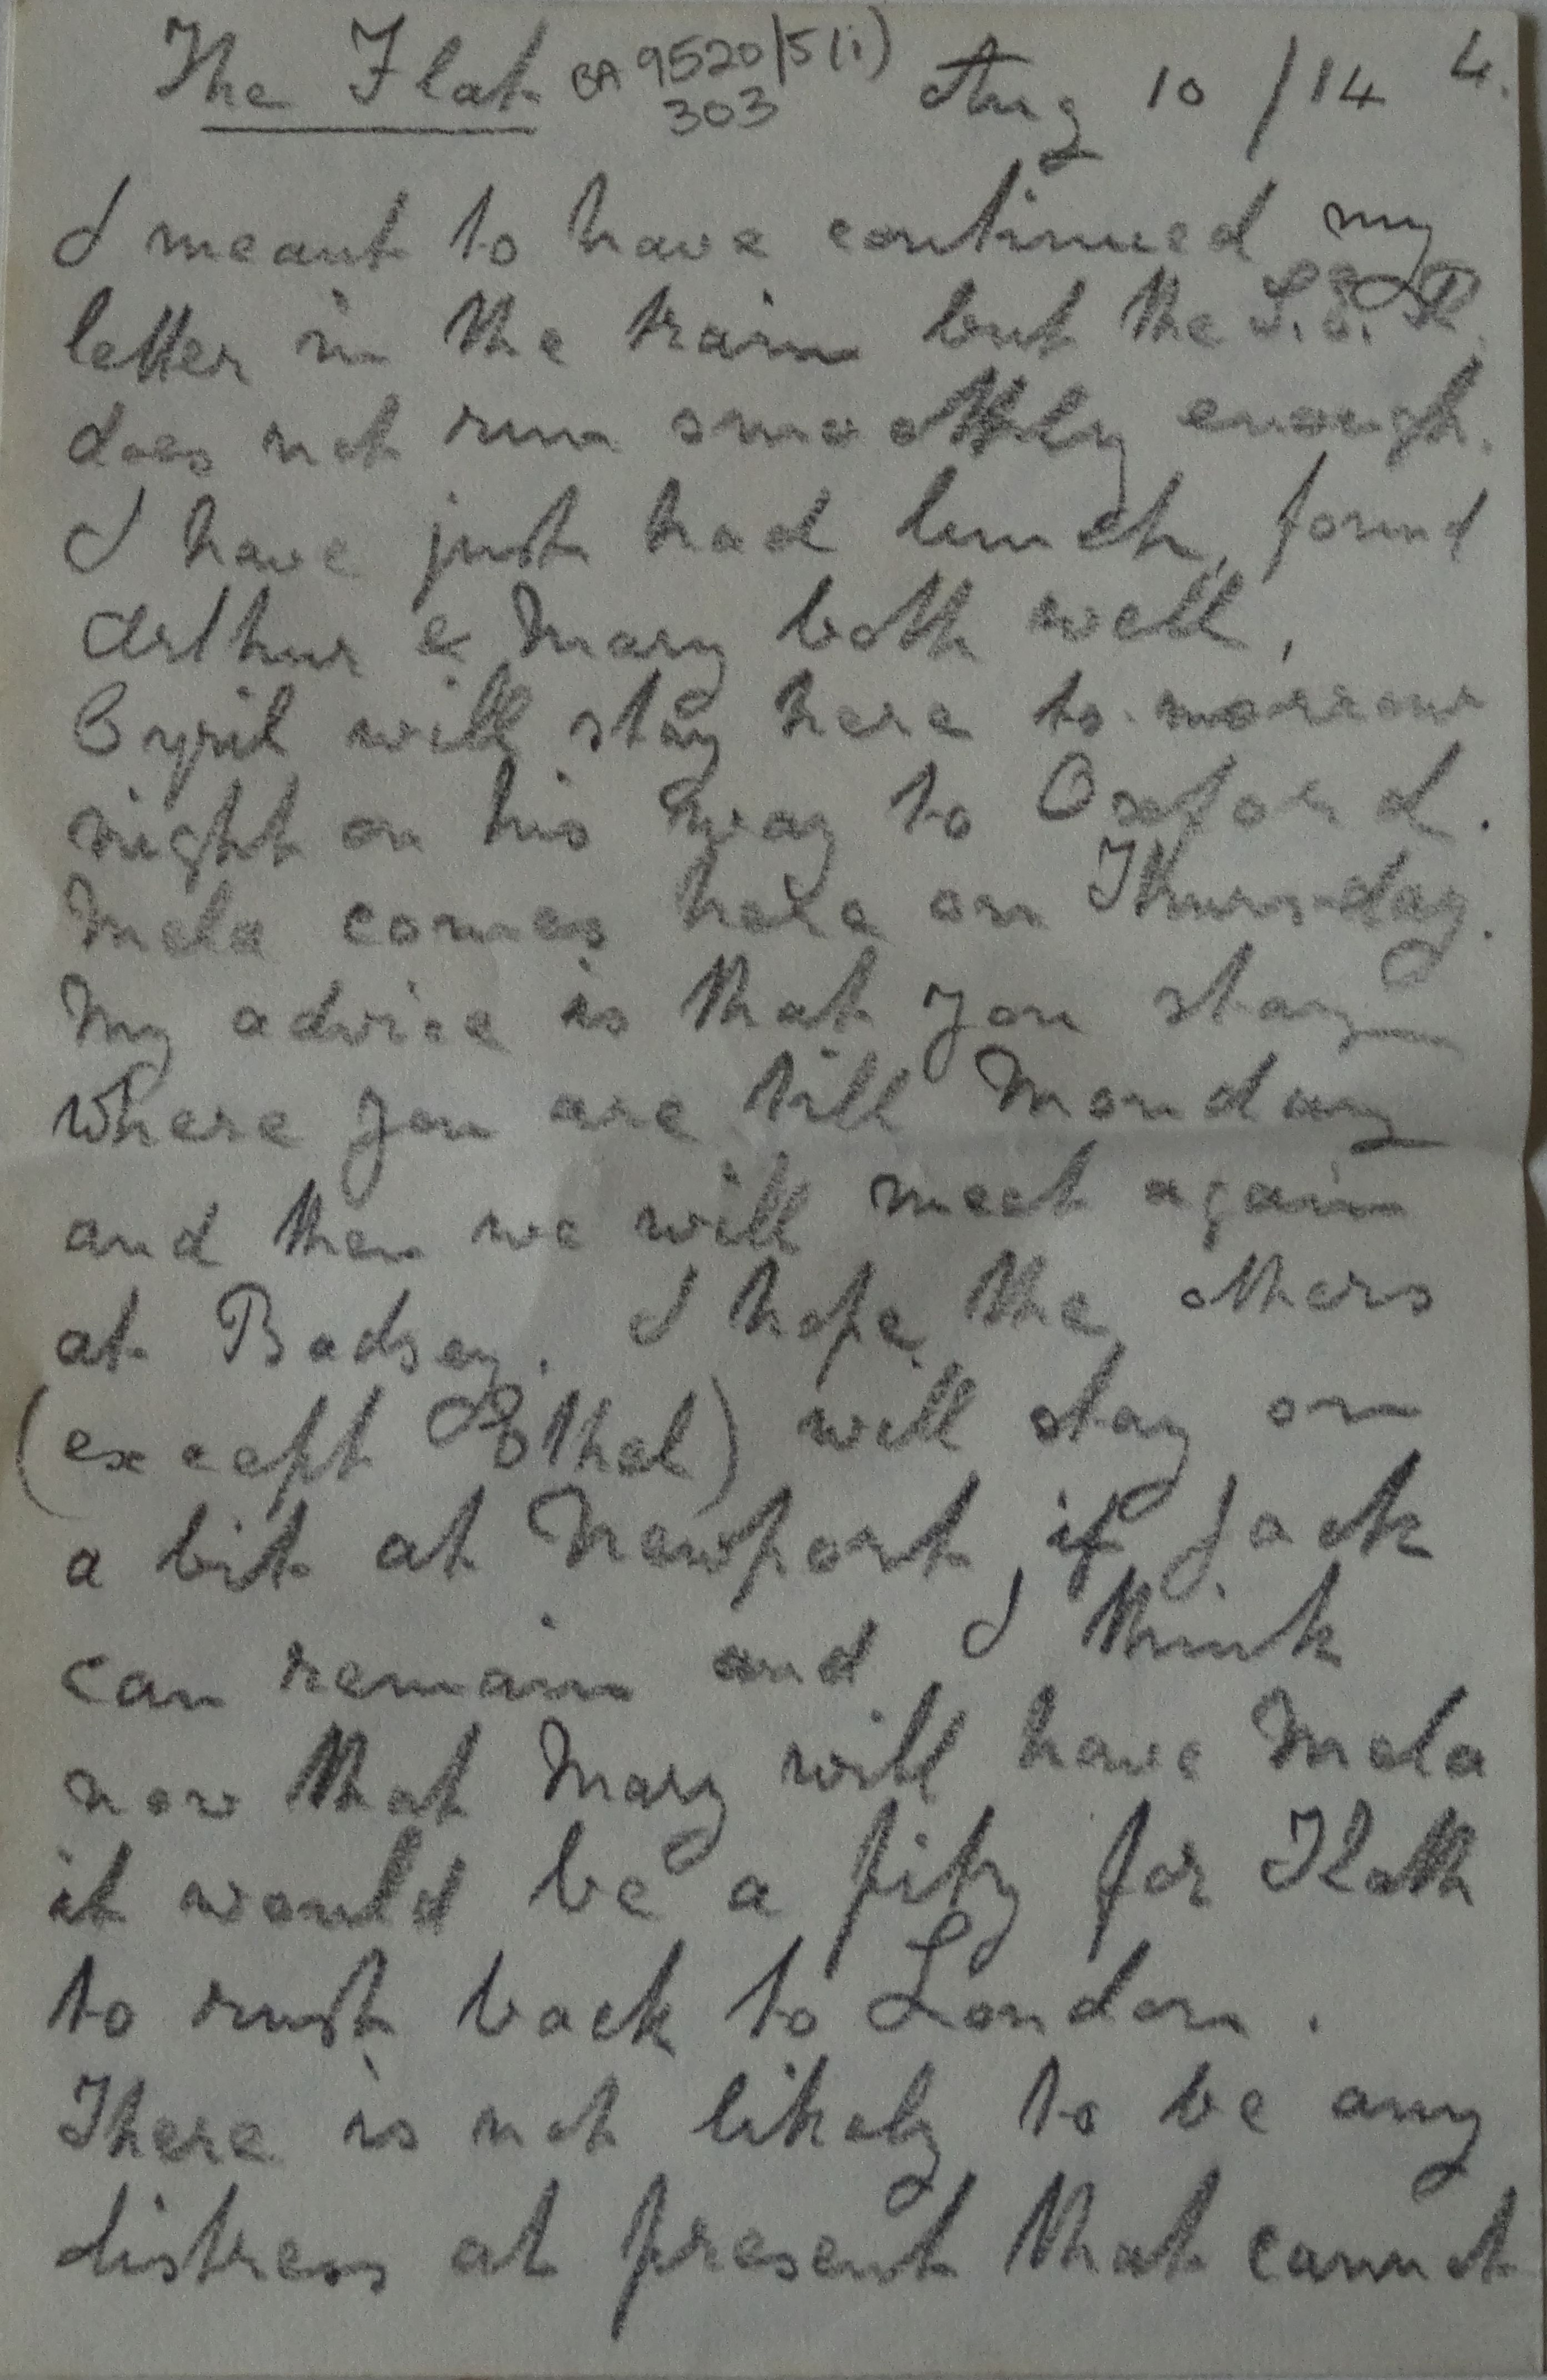 The Flat BA 9520/5(i) Aug 10/14 4.
303
I meant to have continued my
letter in the train but the S.E.R.
does not run smoothly enough.
I have just had lunch, found
Arthur & Mary both well,
Cyril will stay here to-morrow
night on his way to Oxford.
Mela comes here on Thursday.
My advice is that you stay
where you are till Monday
and then we will meet again
at Badsey. I hope the others
(except Ethel) will stay on
a bit at Newport, if Jack
can remain and I think
now that Mary will have Mela
it would be a pity for Kath
to rush back to London.
There is not likely to be any
distress at present that cannot